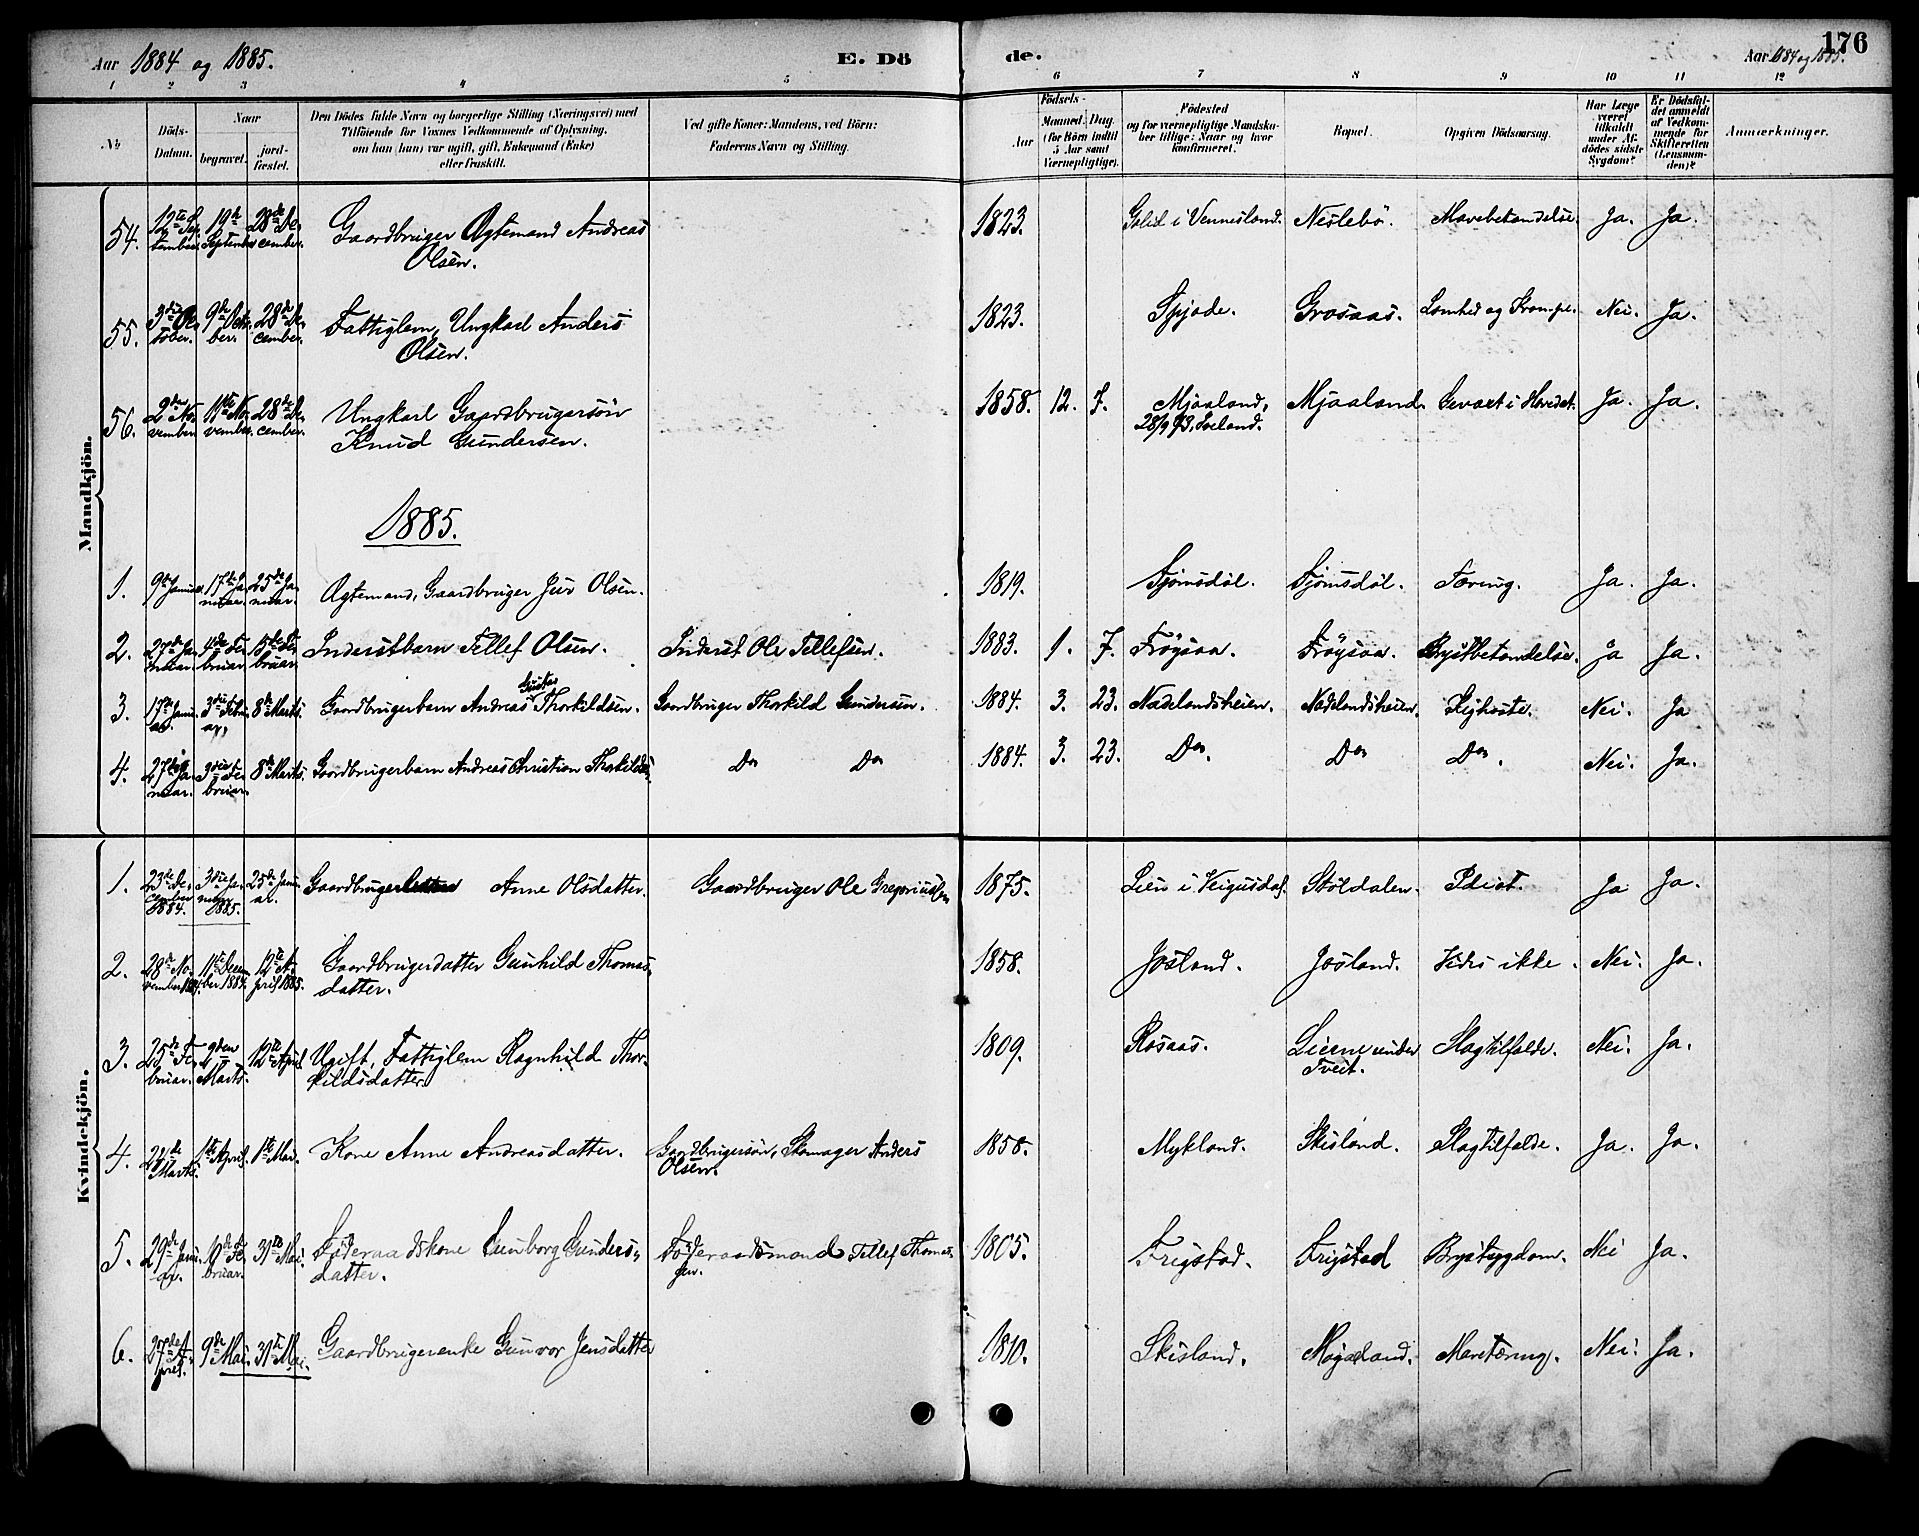 Aar 1884 og 1885. E. Dö de. Aar 1884 og 1885. 176
1 2 3 4 5 6 7 8 9 10 11 12
No
Döds-Datum.
Naar
begravet. jordfæstet.
Den Dödes fulde Navn og borgerlige Stilling (Næringsvei) med
Tilföiende for Voxnes Vedkommende af Oplysning,
om han (hun) var ugift, gift, Enkemand (Enke)
eller fraskilt.
Ved gifte Koner: Mandens, ved Börn:
Faderens Navn og Stilling.
Födsels-
Aar Maaned. Dag.
(for Börn indtil
5 Aar samt
Værnepligtige).
Födested
og for værnepligtige Mandskaber tillige: Naar og hvor
konfirmeret.
Bopæl.
Opgiven Dödsaarsag.
Har Læge
været
tilkaldt
under Afdödes sidste
Sygdom?
Er Dödsfaldet anmeldt
af Vedkommende for
Skifteretten
(Lensmanden)?
Anmærkninger.
Mandkjön.
54. 12te September. 19de September 28de December. Gaardbruger Ægtemand Andreas
Olsen. 1823. i Vennesland. Neslebö. Mavebetændelse. Ja. Ja.
55. 3die October. 9de October. 28de December. Fattiglem, Ungkarl Anders
Olsen. 1823. Grosaas. Lamhed og Krampe. Nei. Ja.
56. 2den November 11te November. 28de December. Ungkarl Gaardbrugersön
Knud Gundersen. 1858. 12. 7. Mjaaland,
28/9 73, Iveland. Mjaaland. Gevæxt i Hovedet. Ja. Ja.
1885.
1. 9de Januar. 17de Januar. 25de Januar. Ægtemand, Gaardbruger Jens Olsen. 1819. Tjomsdöl. Tjomsdöl. Tæring. Ja. Ja.
2. 27de Januar. 4de Februar. 15de Februar. Inderstbarn Tellef Olsen. Inderst Ole Tellefsen. 1883. 1. 7. Fröysaa. Fröysaa. Brystbetændelse. Ja Ja.
3. 17de Januar. 3die Februar, 8de Marts. Gaardbrugerbarn Andreas Gustav Thorkildsen. Gaardbruger Thorkild Gundersen. 1884. 3. 23. Nadelandsheien. Nadelandsheien. Kighoste. Nei. Ja
4. 27de Januar. 3die Februar. 8de Marts. Gaardbrugerbarn Andreas Christian Thorkildsen. Do Do 1884. 3. 23. Do. Do Do. Nei. Ja.
Kvindekjön.
1. 23de December 1884. 3die Januar 1885. 25de Januar. Gaardbrugerdatter Anne Olsdatter. Gaardbruger Ole Gregoriussen 1875. Lien i Veigusdal. Stöldalen. Idiot. Ja Ja.
2. 28de November 1884. 11te December 1884. 12te April 1885. Gaardbrugerdatter Gunhild Thomas-
datter. 1858. Josland. Josland. Vides ikke. Nei. Ja.
3. 25de Februar. 2den Marts. 12te April. Ugift, Fattiglem Ragnhild Thor-
kildsdatter. 1809. Rosaas. Lierne under
Tveit. Slagtilfælde. Nei. Ja.
4. 22de Marts. 1ste April. 1ste Mai. Kone Anne Andreasdatter. Gaardbrugersön, Skomager Anders
Olsen. 1858. Mykland. Skisland. Slagtilfælde. Ja. Ja.
5. 29de Januar. 10de Februar. 31te Mai. Föderaadskone Gunborg Gunders-
datter. Föderaadsmand Tellef Thomas-
sen. 1805. Frigstad. Frigstad Brystsygdom. Nei Ja.
6. 27de April. 9de Mai 31te Mai. Gaardbrugerenke Gunvor Jensdatter 1810. Skisland. Mavetæring. Nei. Ja.